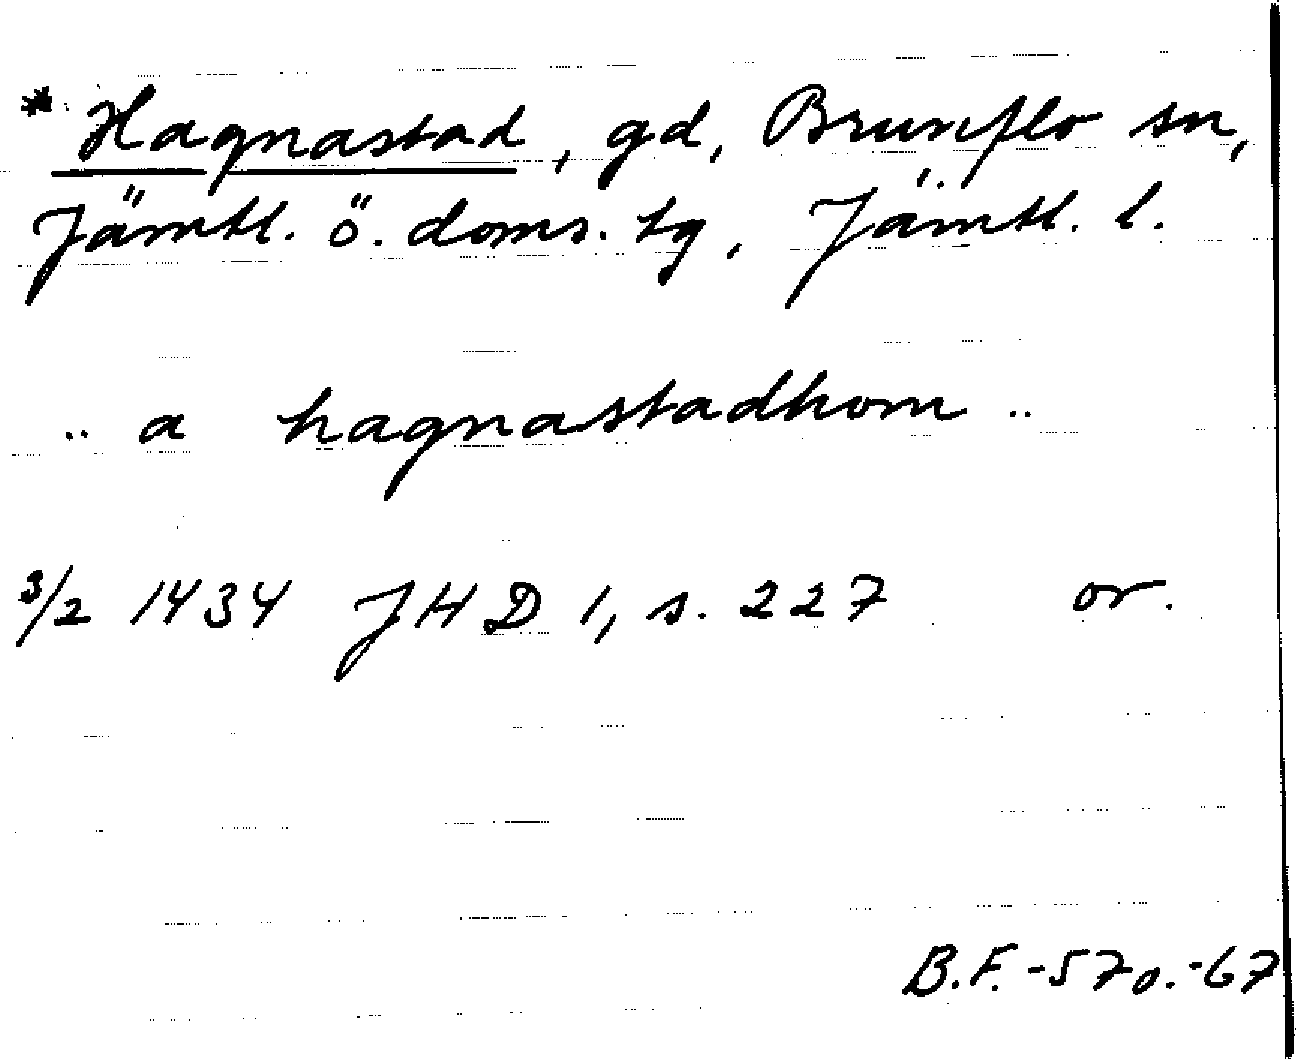 * Hagnastad, gd, Brunflo sn,
Jämtl. ö. doms. tg, Jämtl. l.
.. a hagnastadhom ..
3/2 1434 JHD 1, s. 227 or.
B.F. -57 o. -67